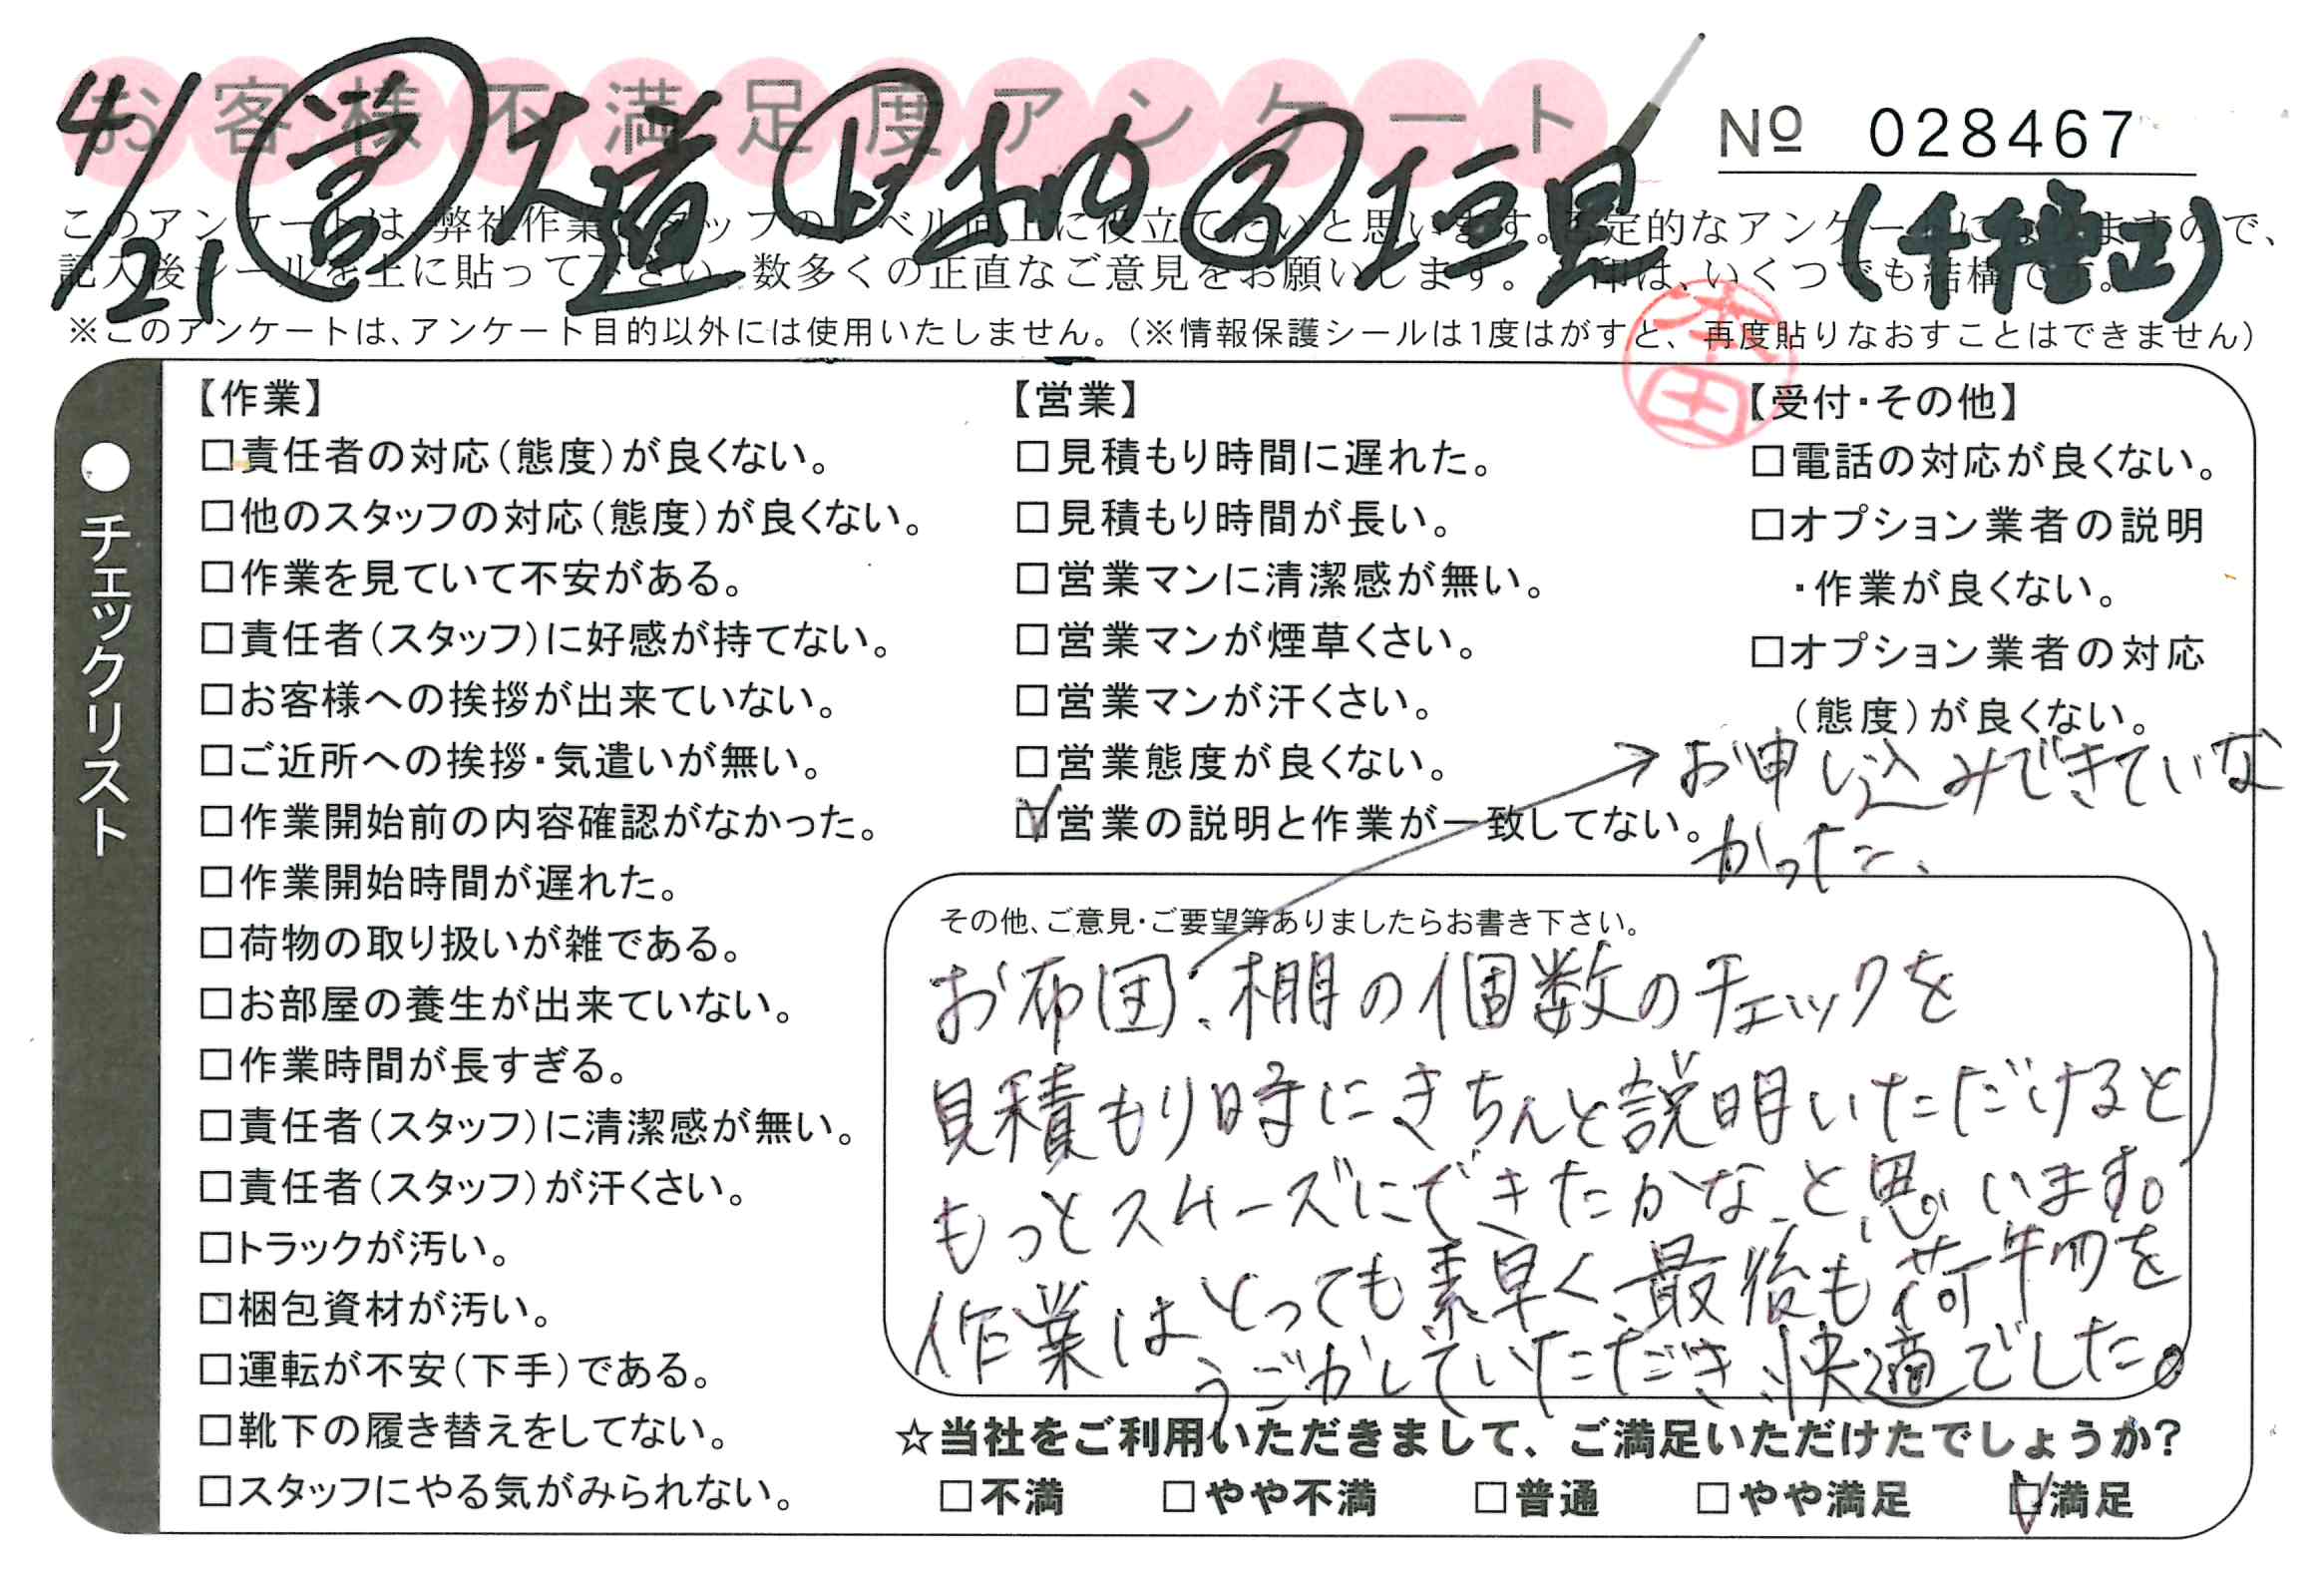 お客様不満足度アンケート
№ 028467
4/21 営 大道
このアンケートは、弊社作業スタッフのレベル向上に役立てたいと思います。否定的なアンケートになりますので、
記入後シールを上に貼って下さい。数多くの正直なご意見をお願いします。 印は、いくつでも結構です。
※このアンケートは、アンケート目的以外には使用いたしません。（※情報保護シールは1度はがすと、再度貼りなおすことはできません）
本田
●チェックリスト
【作業】
□責任者の対応（態度）が良くない。
□他のスタッフの対応（態度）が良くない。
□作業を見ていて不安がある。
□責任者（スタッフ）に好感が持てない。
□お客様への挨拶が出来ていない。
□ご近所への挨拶・気遣いが無い。
□作業開始前の内容確認がなかった。
□作業開始時間が遅れた。
□荷物の取り扱いが雑である。
□お部屋の養生が出来ていない。
□作業時間が長すぎる。
□責任者（スタッフ）に清潔感が無い。
□責任者（スタッフ）が汗くさい。
□トラックが汚い。
□梱包資材が汚い。
□運転が不安（下手）である。
□靴下の履き替えをしてない。
□スタッフにやる気がみられない。
【営業】
□見積もり時間に遅れた。
□見積もり時間が長い。
□営業マンに清潔感が無い。
□営業マンが煙草くさい。
□営業マンが汗くさい。
□営業態度が良くない。
☑営業の説明と作業が一致してない。
【受付・その他】
□電話の対応が良くない。
□オプション業者の説明
・作業が良くない。
□オプション業者の対応
（態度）が良くない。
→お申し込みできていな
かった、
その他、ご意見・ご要望等ありましたらお書き下さい。
お布団、棚の個数のチェックを
見積もり時にきちんと説明いただけると
もっとスムーズにできたかな、と思います。
作業はとっても素早く、最後も荷物を
うごかしていただき、快適でした。
☆当社をご利用いただきまして、ご満足いただけたでしょうか？
□不満 □やや不満 □普通 □やや満足 ☑満足